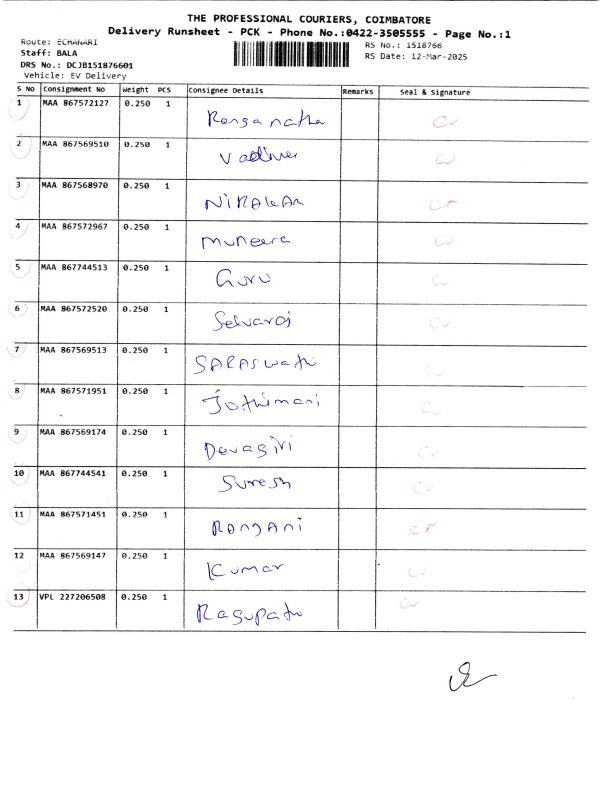 THE PROFESSIONAL COURIERS, COIMBATORE
Delivery Runsheet - PCK - Phone No.:0422-3505555 - Page No.:1
Route: ECHANARI
RS No.: 1518766
Staff: BALA
RS Date: 12-Mar-2025
DRS No.: DCJB151876601
Vehicle: EV Delivery
S No Consignment No Weight PCS Consignee Details Remarks Seal & Signature
1 MAA 867572127 0.250 1 Ranganatha Cr
2 MAA 867569510 0.250 1 Vadivel
3 MAA 867568970 0.250 1 Cr
4 MAA 867572967 0.250 1 Muneera
5 MAA 867744513 0.250 1 Guru
6 MAA 867572520 0.250 1 Selvaraj
7 MAA 867569513 0.250 1 SARASwathi
8 MAA 867571951 0.250 1 Jothimani
9 MAA 867569174 0.250 1 Devagiri
10 MAA 867744541 0.250 1 Suresh
11 MAA 867571451 0.250 1 Cr
12 MAA 867569147 0.250 1 Kumar
13 VPL 227206508 0.250 1 Ragupathi